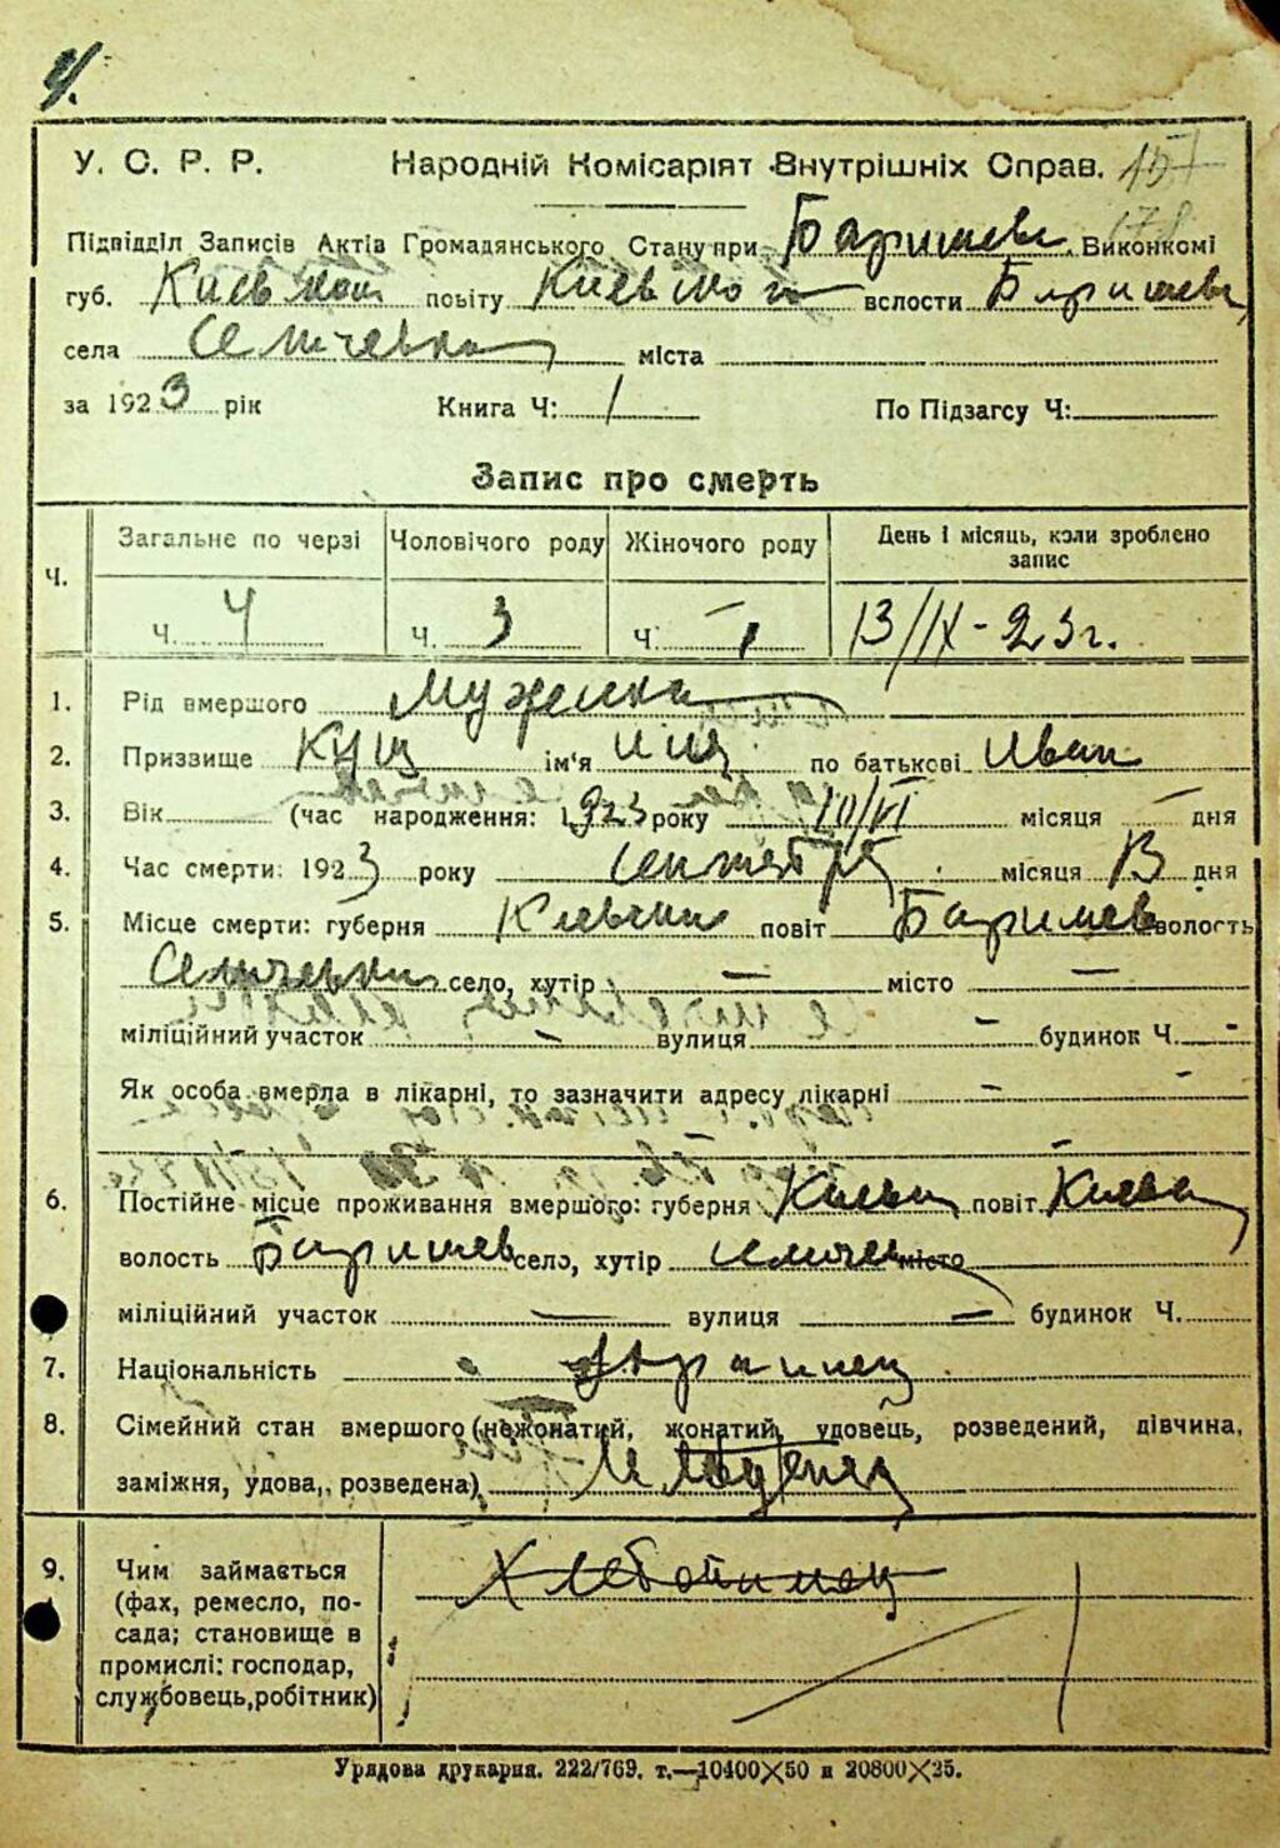 4.
У. С. Р. Р. Народній Комісаріят Внутрішніх Справ. 157
178
Підвідділ Записів Актів Громадянського Стану при Баришевс. Виконкомі
губ. Київської повіту Київського вслости Баришевс
села Селичевка міста
за 1923 рік Книга Ч: 1 По Підзагсу Ч:
Запис про смерть
Ч. Загальне по черзі Чоловічого роду Жіночого роду День і місяць, коли зроблено запис
Ч. 4 Ч. 3 Ч. 1 13/IX-23г.
1. Рід вмершого Мужеска
2. Призвище Кущ ім'я по батькові Иван
3. Вік (час народження: 1923 року місяця — дня
4. Час смерти: 1923 року сентября місяця 13 дня
5. Місце смерти: губерня Киевски повіт Баришев волость
Селичевки село, хутір — місто —
міліційний участок — вулиця — будинок Ч. -
Як особа вмерла в лікарні, то зазначити адресу лікарні — -
6. Постійне місце проживання вмершого: губерня повіт Киева
волость Баришев село, хутір Селичев місто
міліційний участок — вулиця — будинок Ч.
7. Національність Украинец
8. Сімейний стан вмершого (нежонатий, жонатий, удовець, розведений, дівчина,
заміжня, удова,, розведена) Младенец
9. Чим займається Хлебопашец
(фах, ремесло, по-
сада; становище в
промислі: господар,
службовець, робітник)
Урядова друкарня. 222/769. т.—10400×50 и 20800×25.